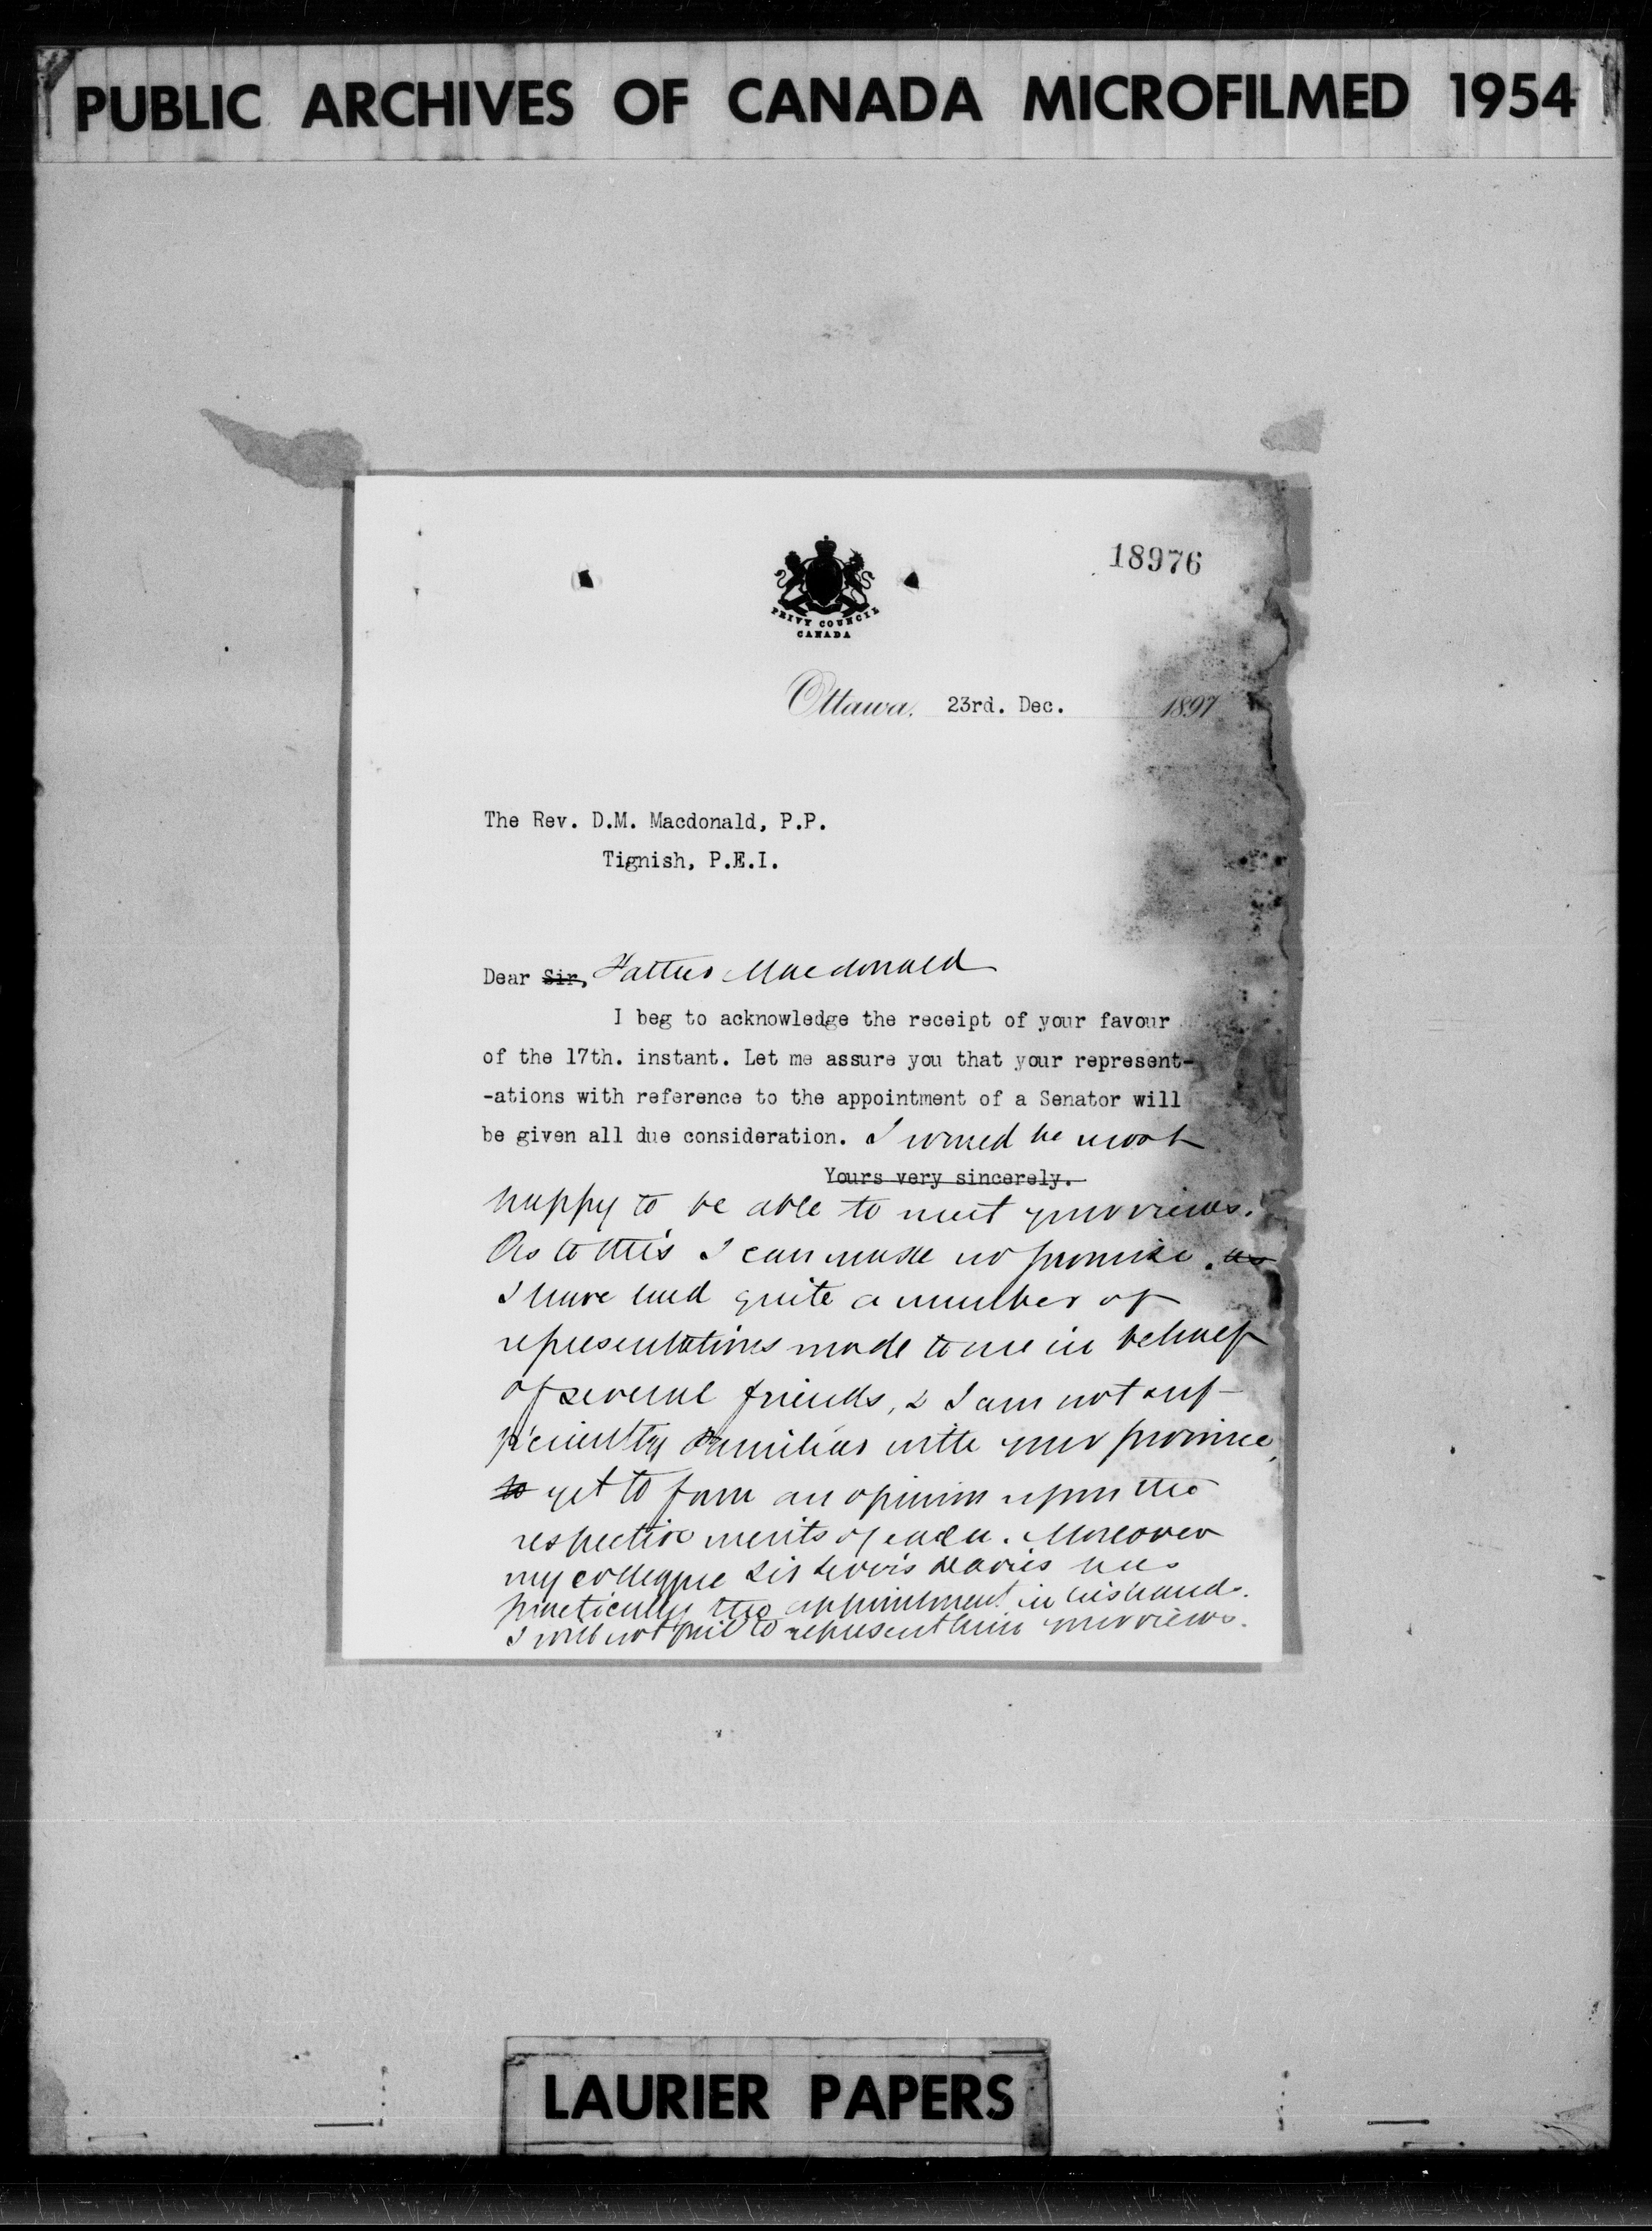 PUBLIC ARCHIVES OF CANADA MICROFILMED 1954
18976
PRIVY COUNCIL
CANADA
Ottawa, 23rd. Dec. 1897
The Rev. D.M. Macdonald, P.P.
Tignish, P.E.I.
Dear Sir, Father Macdonald
I beg to acknowledge the receipt of your favour
of the 17th. instant. Let me assure you that your represent-
-ations with reference to the appointment of a Senator will
be given all due consideration. I would be most
Yours very sincerely.
happy to be able to meet your views.
As to this I can make no promise. as
I have had quite a number of
representations made to me in behalf
of several friends, & I am not suf-
ficiently familiar with your province,
to yet to form an opinion upon the
respective merits of each. Moreover
my colleague Sir Louis Davies has
practically the appointment in his hands.
I will not fail to represent him your views.
LAURIER PAPERS